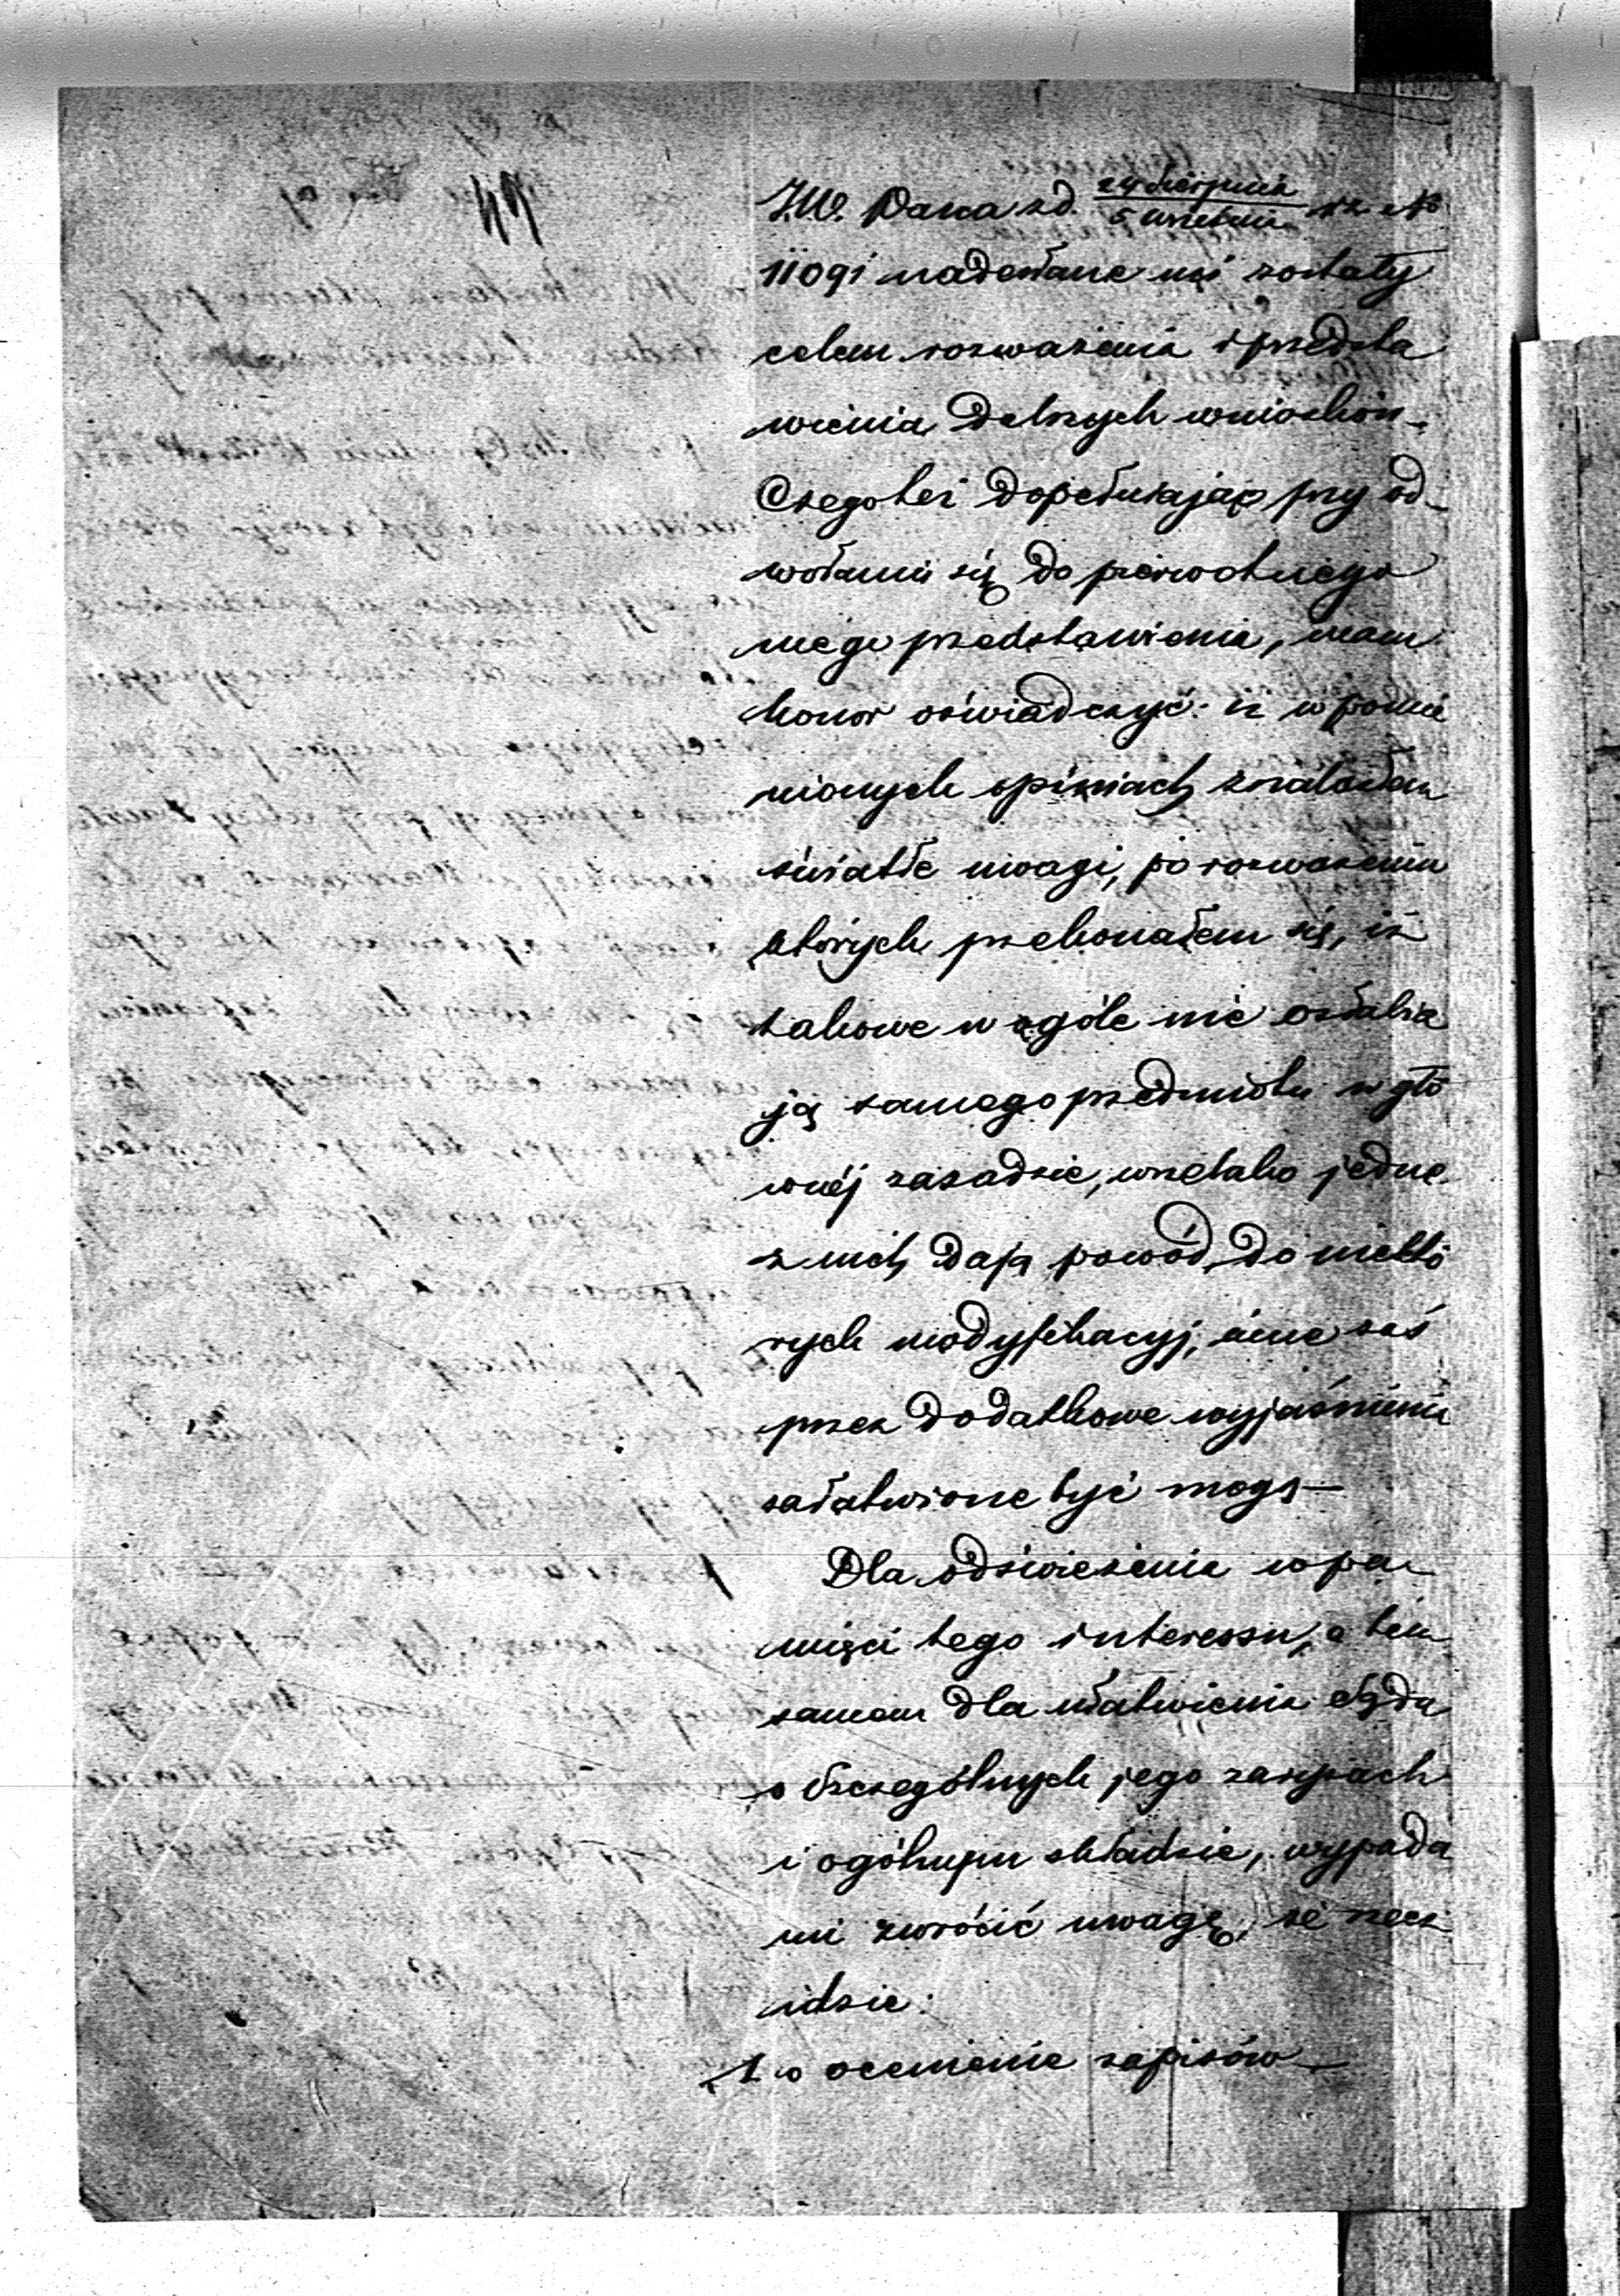 J.W. Pana zd. 24 Sierpnia / 5 Września rz. No
11091 nadesłane mi zostały
celem rozważenia i przedsta
wienia dalszych wniosków.
Czegoteż dopełniając przy od-
wołaniu się do pierwotnego
mego przedstawienia, mam
honor oświadczyć: iż w pomie
nionych opiniach znalazłem
światłe uwagi, po rozważeniu
których przekonałem się, iż
takowe w ogóle nie osłabia
ją samego przedmiotu w głó
wnéj zasadzie, wszelako jedne
z nich dają powód do niektó
rych modyfikacyj, inne zaś
przez dodatkowe wyjaśnienia
załatwione być mogą —
Dla odświeżenia w pa
mięci tego interessu, a tem
samem dla ułatwienia sądu
o szczególnych jego zarysach
i ogólnym składzie, wypada
mi zwrócić uwagę, że rzecz
idzie:
1 o ocenienie zapisów —